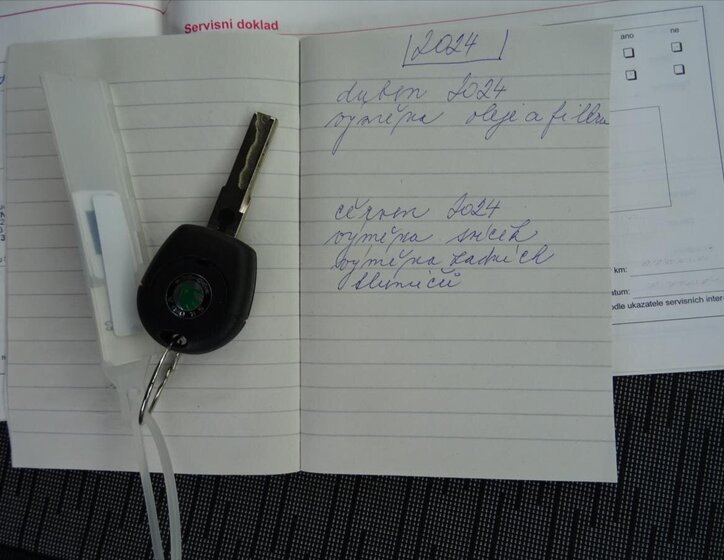 Servisní doklad
ano
ne
2024
duben 2024
výměna oleje a filtru
červen 2024
výměna svíček
výměna zadních
tlumičů
km:
atum:
odle ukazatele servisních inter